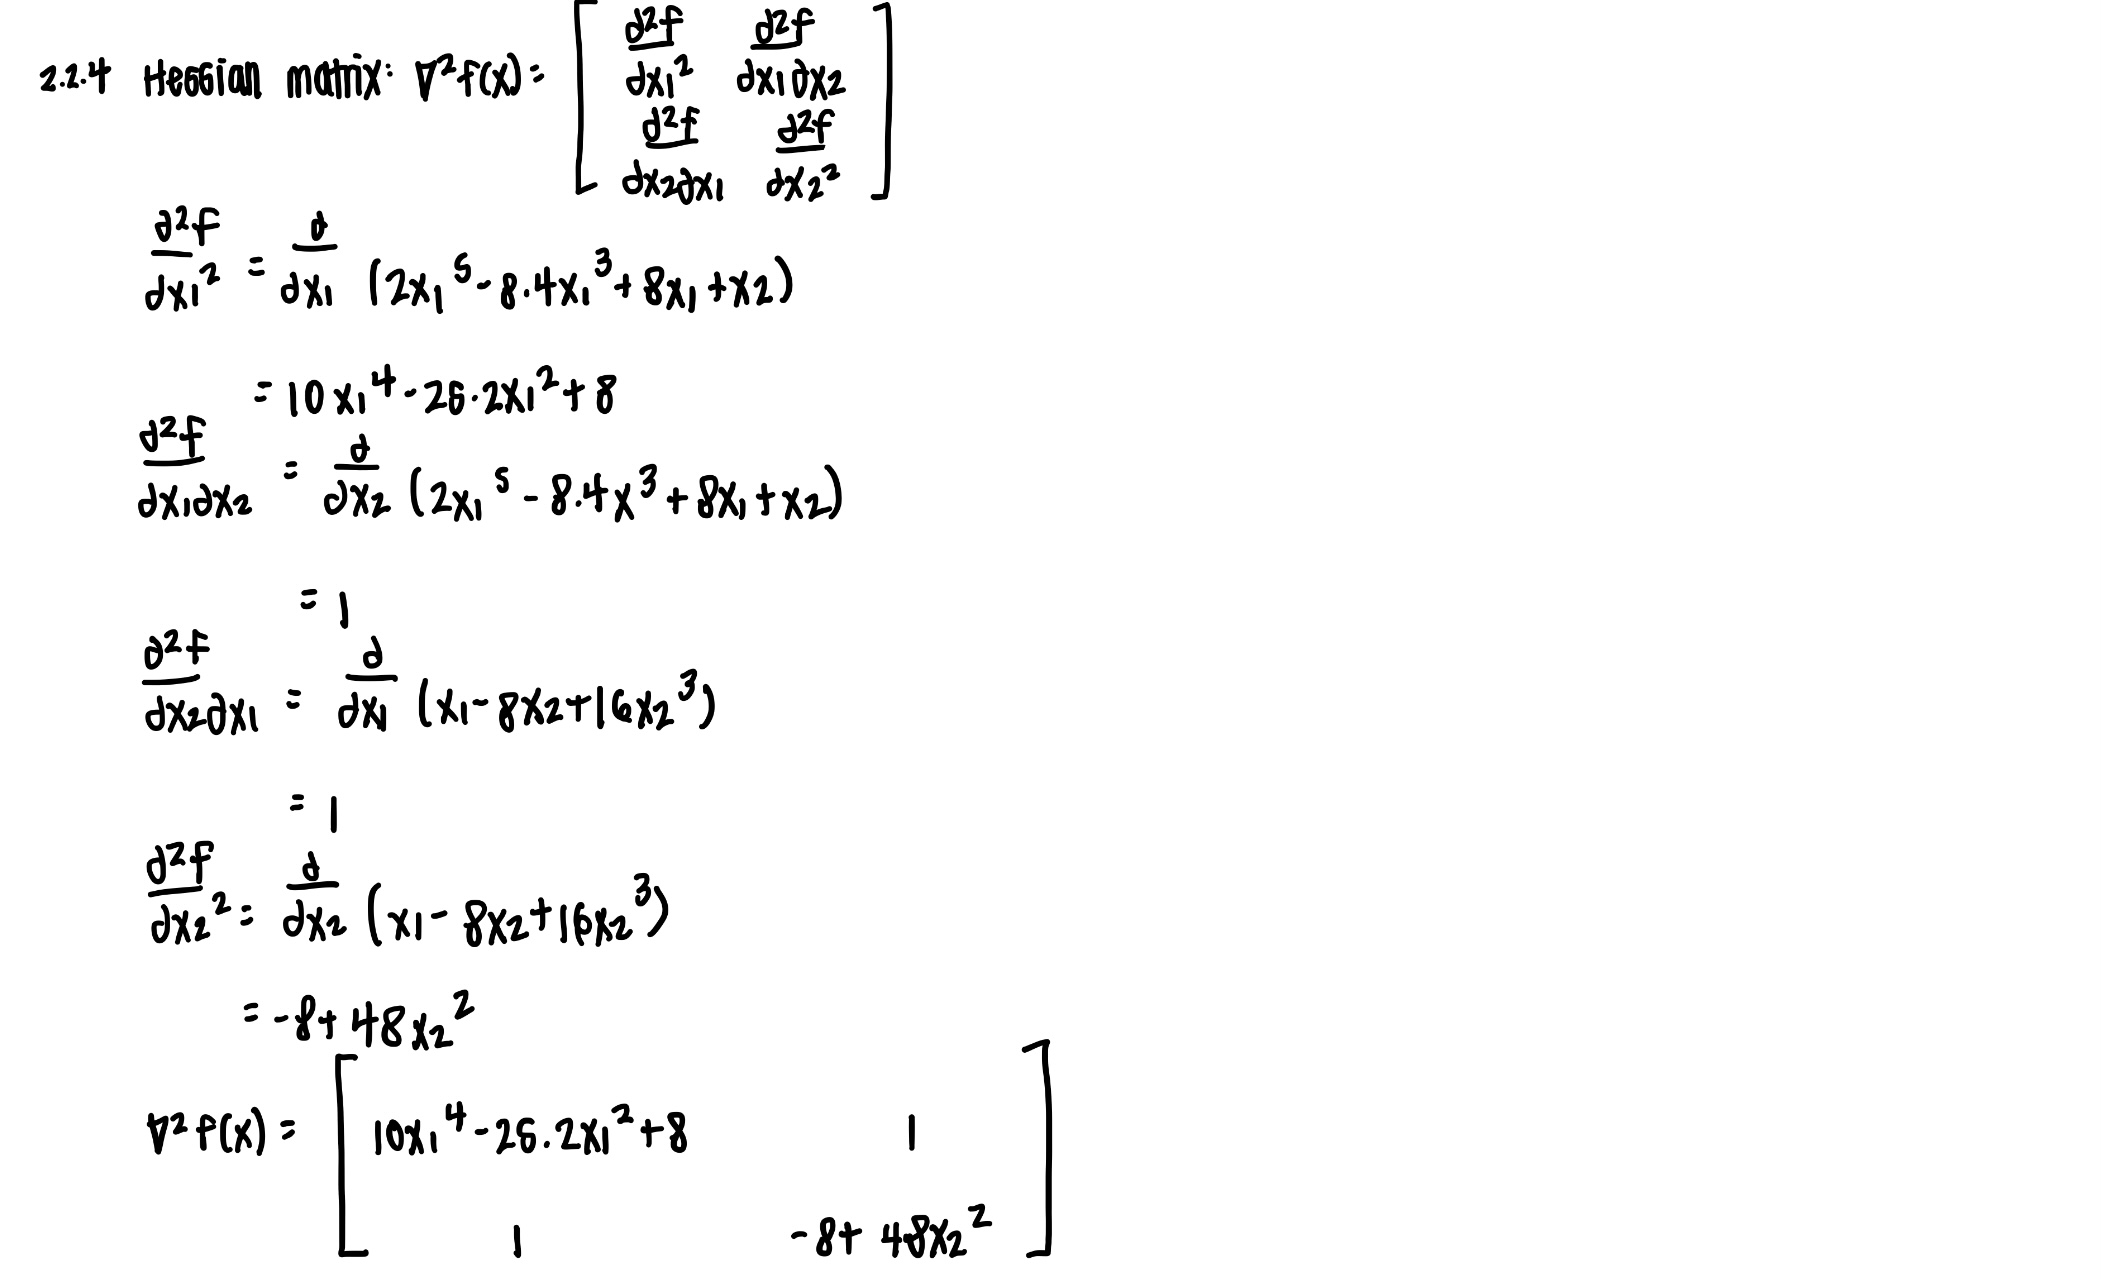 2.2.4 Hessian matrix: ∇²f(x) = [ ∂²f/∂x₁² ∂²f/∂x₁∂x₂
∂²f/∂x₂∂x₁ ∂²f/∂x₂² ]
∂²f/∂x₁² = ∂/∂x₁ (2x₁⁵ - 8.4x₁³ + 8x₁ + x₂)
= 10x₁⁴ - 25.2x₁² + 8
∂²f/∂x₁∂x₂ = ∂/∂x₂ (2x₁⁵ - 8.4x³ + 8x₁ + x₂)
= 1
∂²f/∂x₂∂x₁ = ∂/∂x₁ (x₁ - 8x₂ + 16x₂³)
= 1
∂²f/∂x₂² = ∂/∂x₂ (x₁ - 8x₂ + 16x₂³)
= -8 + 48x₂²
∇²f(x) = [ 10x₁⁴ - 25.2x₁² + 8 1
1 -8 + 48x₂² ]